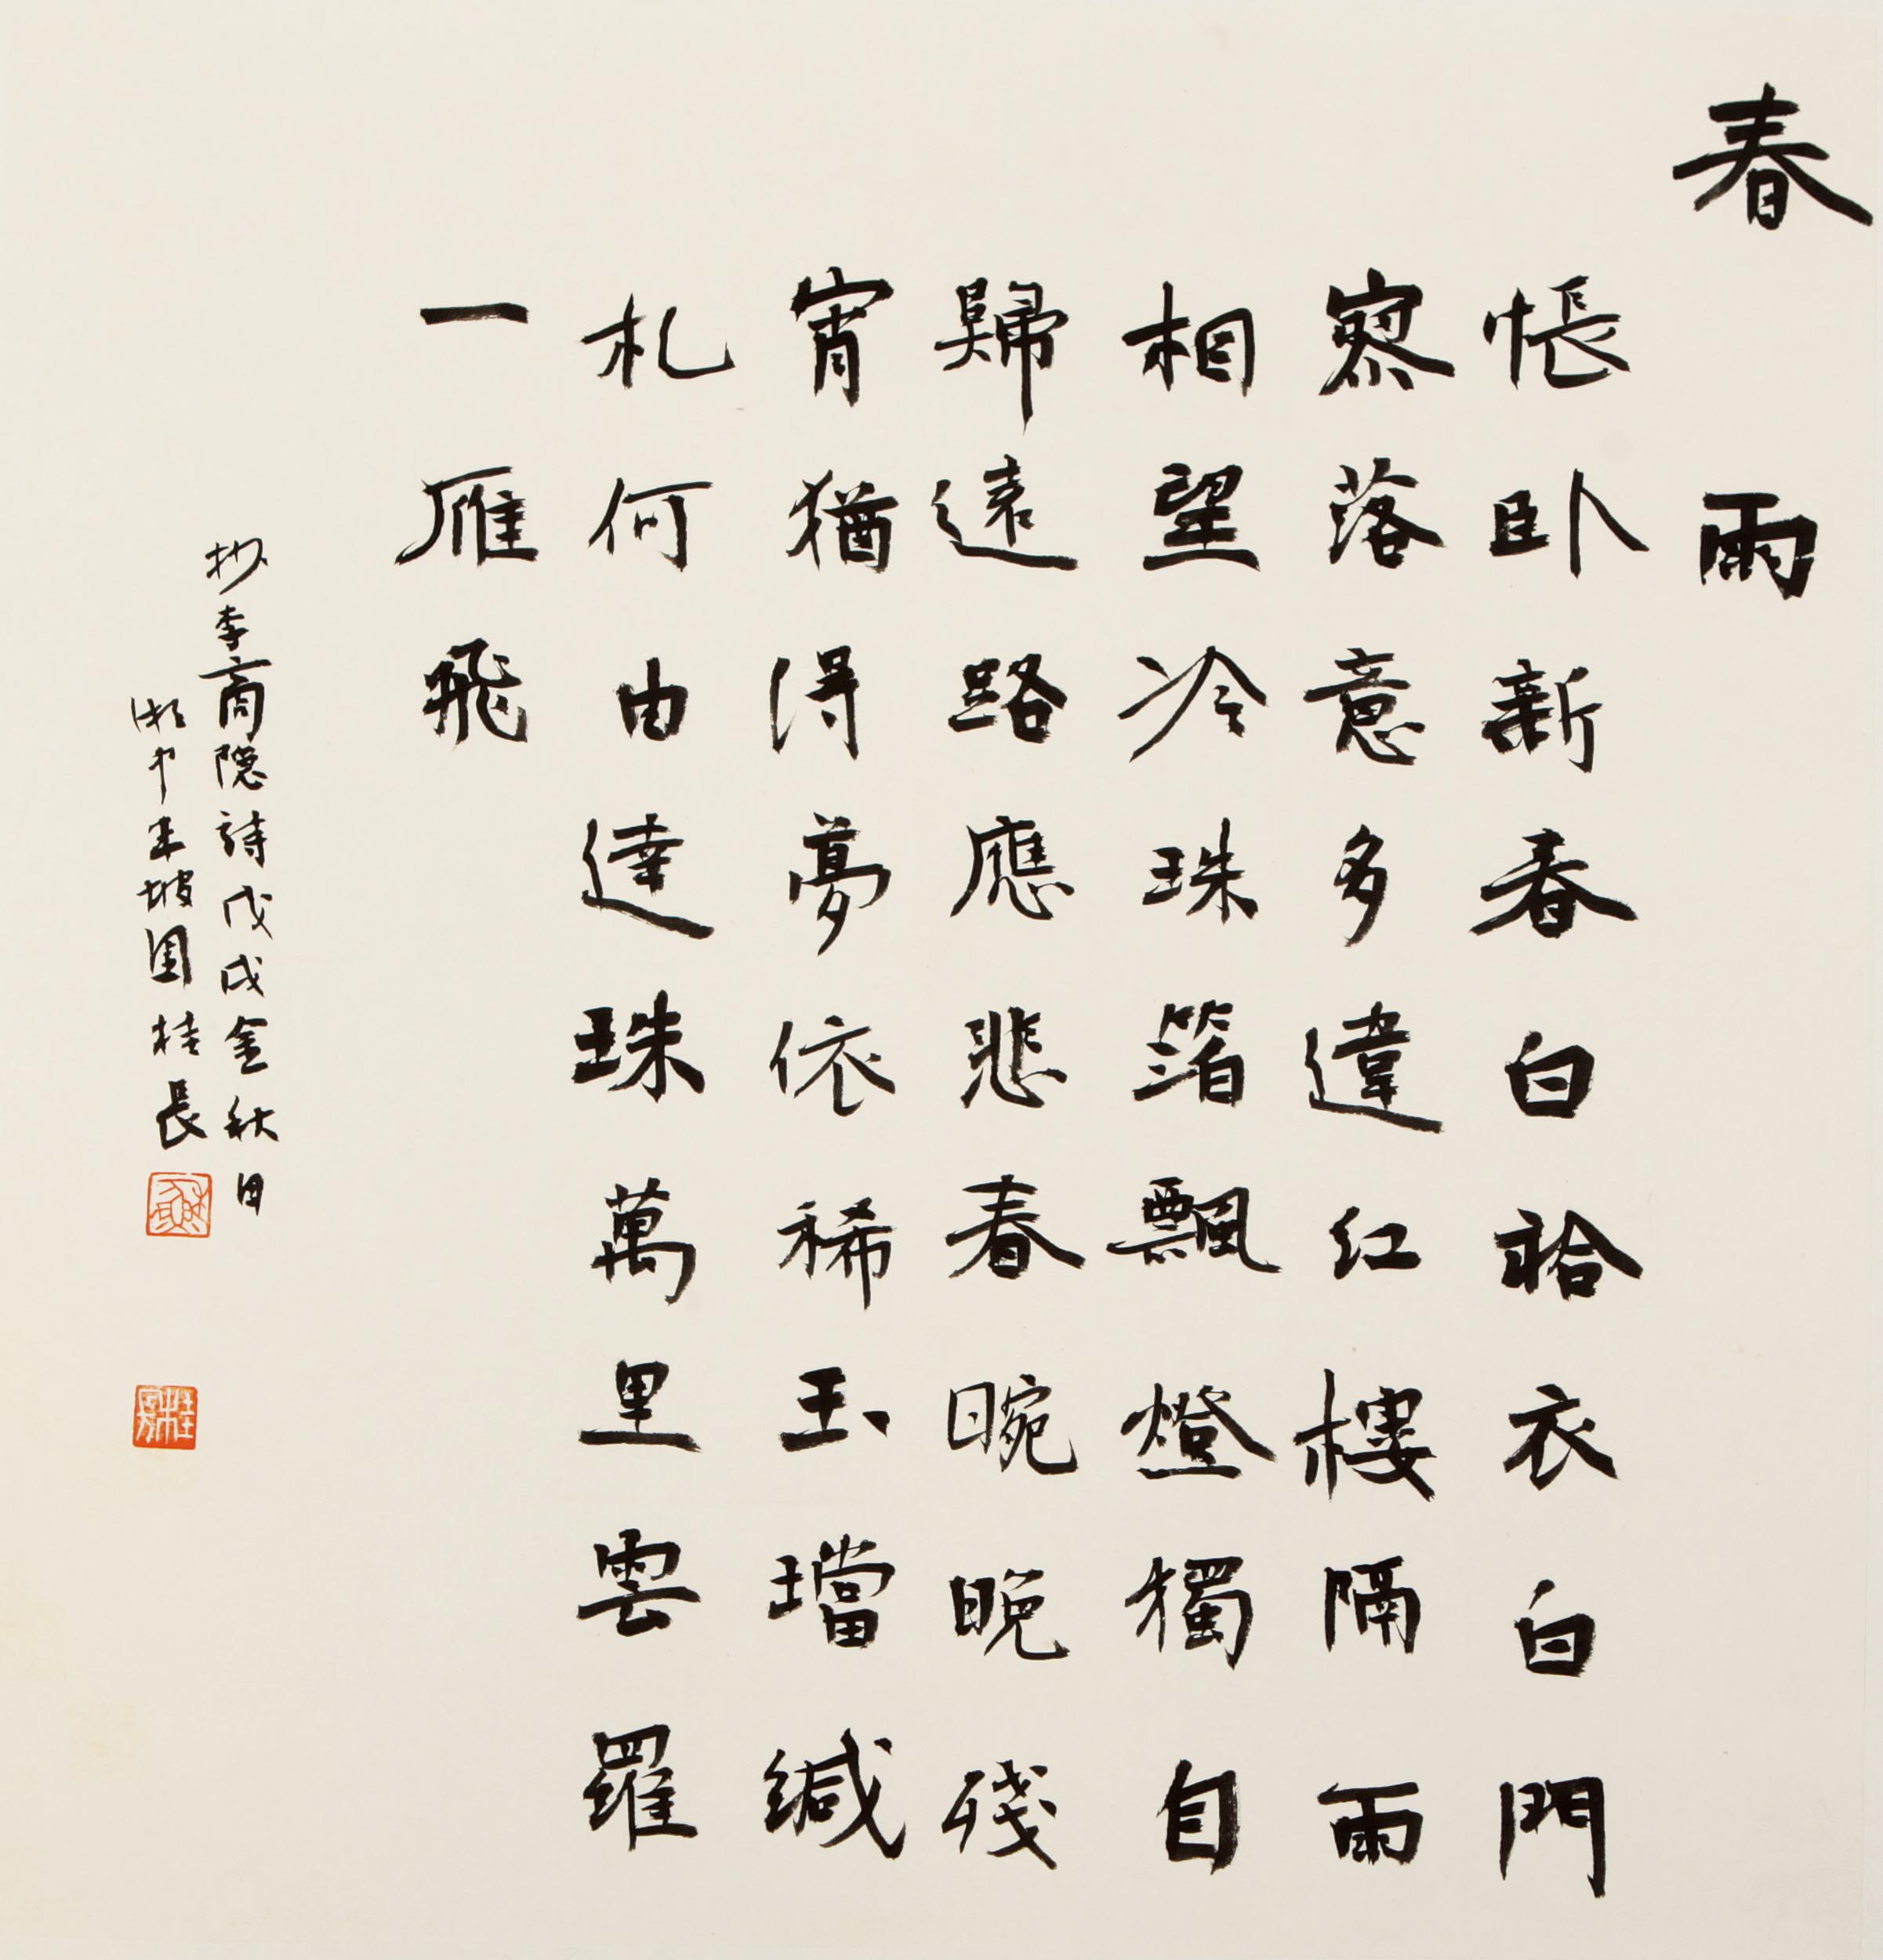 春雨
悵卧新春白袷衣白門
寥落意多違红樓隔雨
相望冷珠箔飄燈獨自
歸遠路應悲春晼晚殘
宵猶得夢依稀玉璫緘
札何由達珠萬里雲羅
一雁飛
抄李商隐詩戊戌金秋日
湘中坡桂長